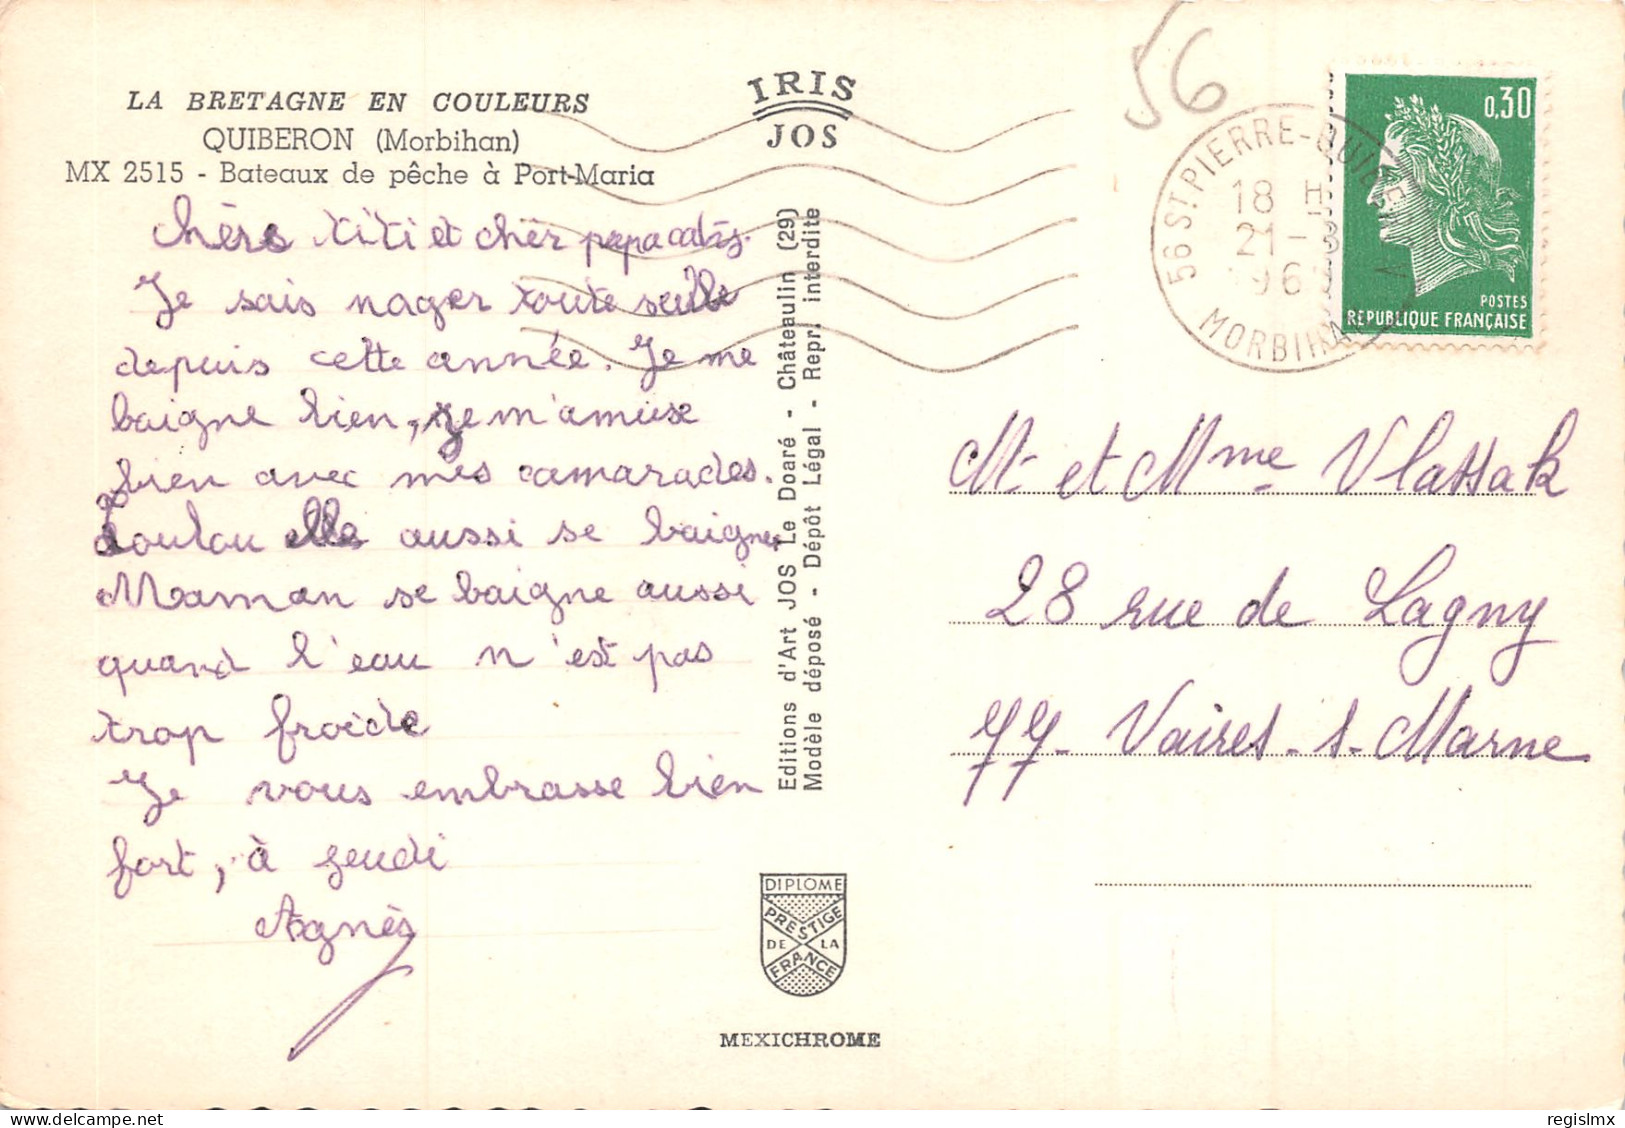 LA BRETAGNE EN COULEURS
QUIBERON (Morbihan)
MX 2515 - Bateaux de pêche à Port-Maria
IRIS
JOS
56
56 ST. PIERRE-QUIBERON
18 H
21-8
196
MORBIHAN
0,30
POSTES
REPUBLIQUE FRANÇAISE
chère titi et cher papa
Je sais nager toute seule
depuis cette année. Je me
baigne bien, je m'amuse
bien avec mes camarades.
Loulou elle aussi se baigne
Maman se baigne aussi
quand l'eau n'est pas
trop froide
Je vous embrasse bien
fort, à jeudi
Agnès
Editions d'Art JOS Le Doaré - Châteaulin (29)
Modèle déposé - Dépôt Légal - Repr. interdite
Mr et Mme Vlassak
28 rue de Lagny
77- Vaires-s-Marne
DIPLOME
PRESTIGE
DE LA
FRANCE
MEXICHROME
regislmx